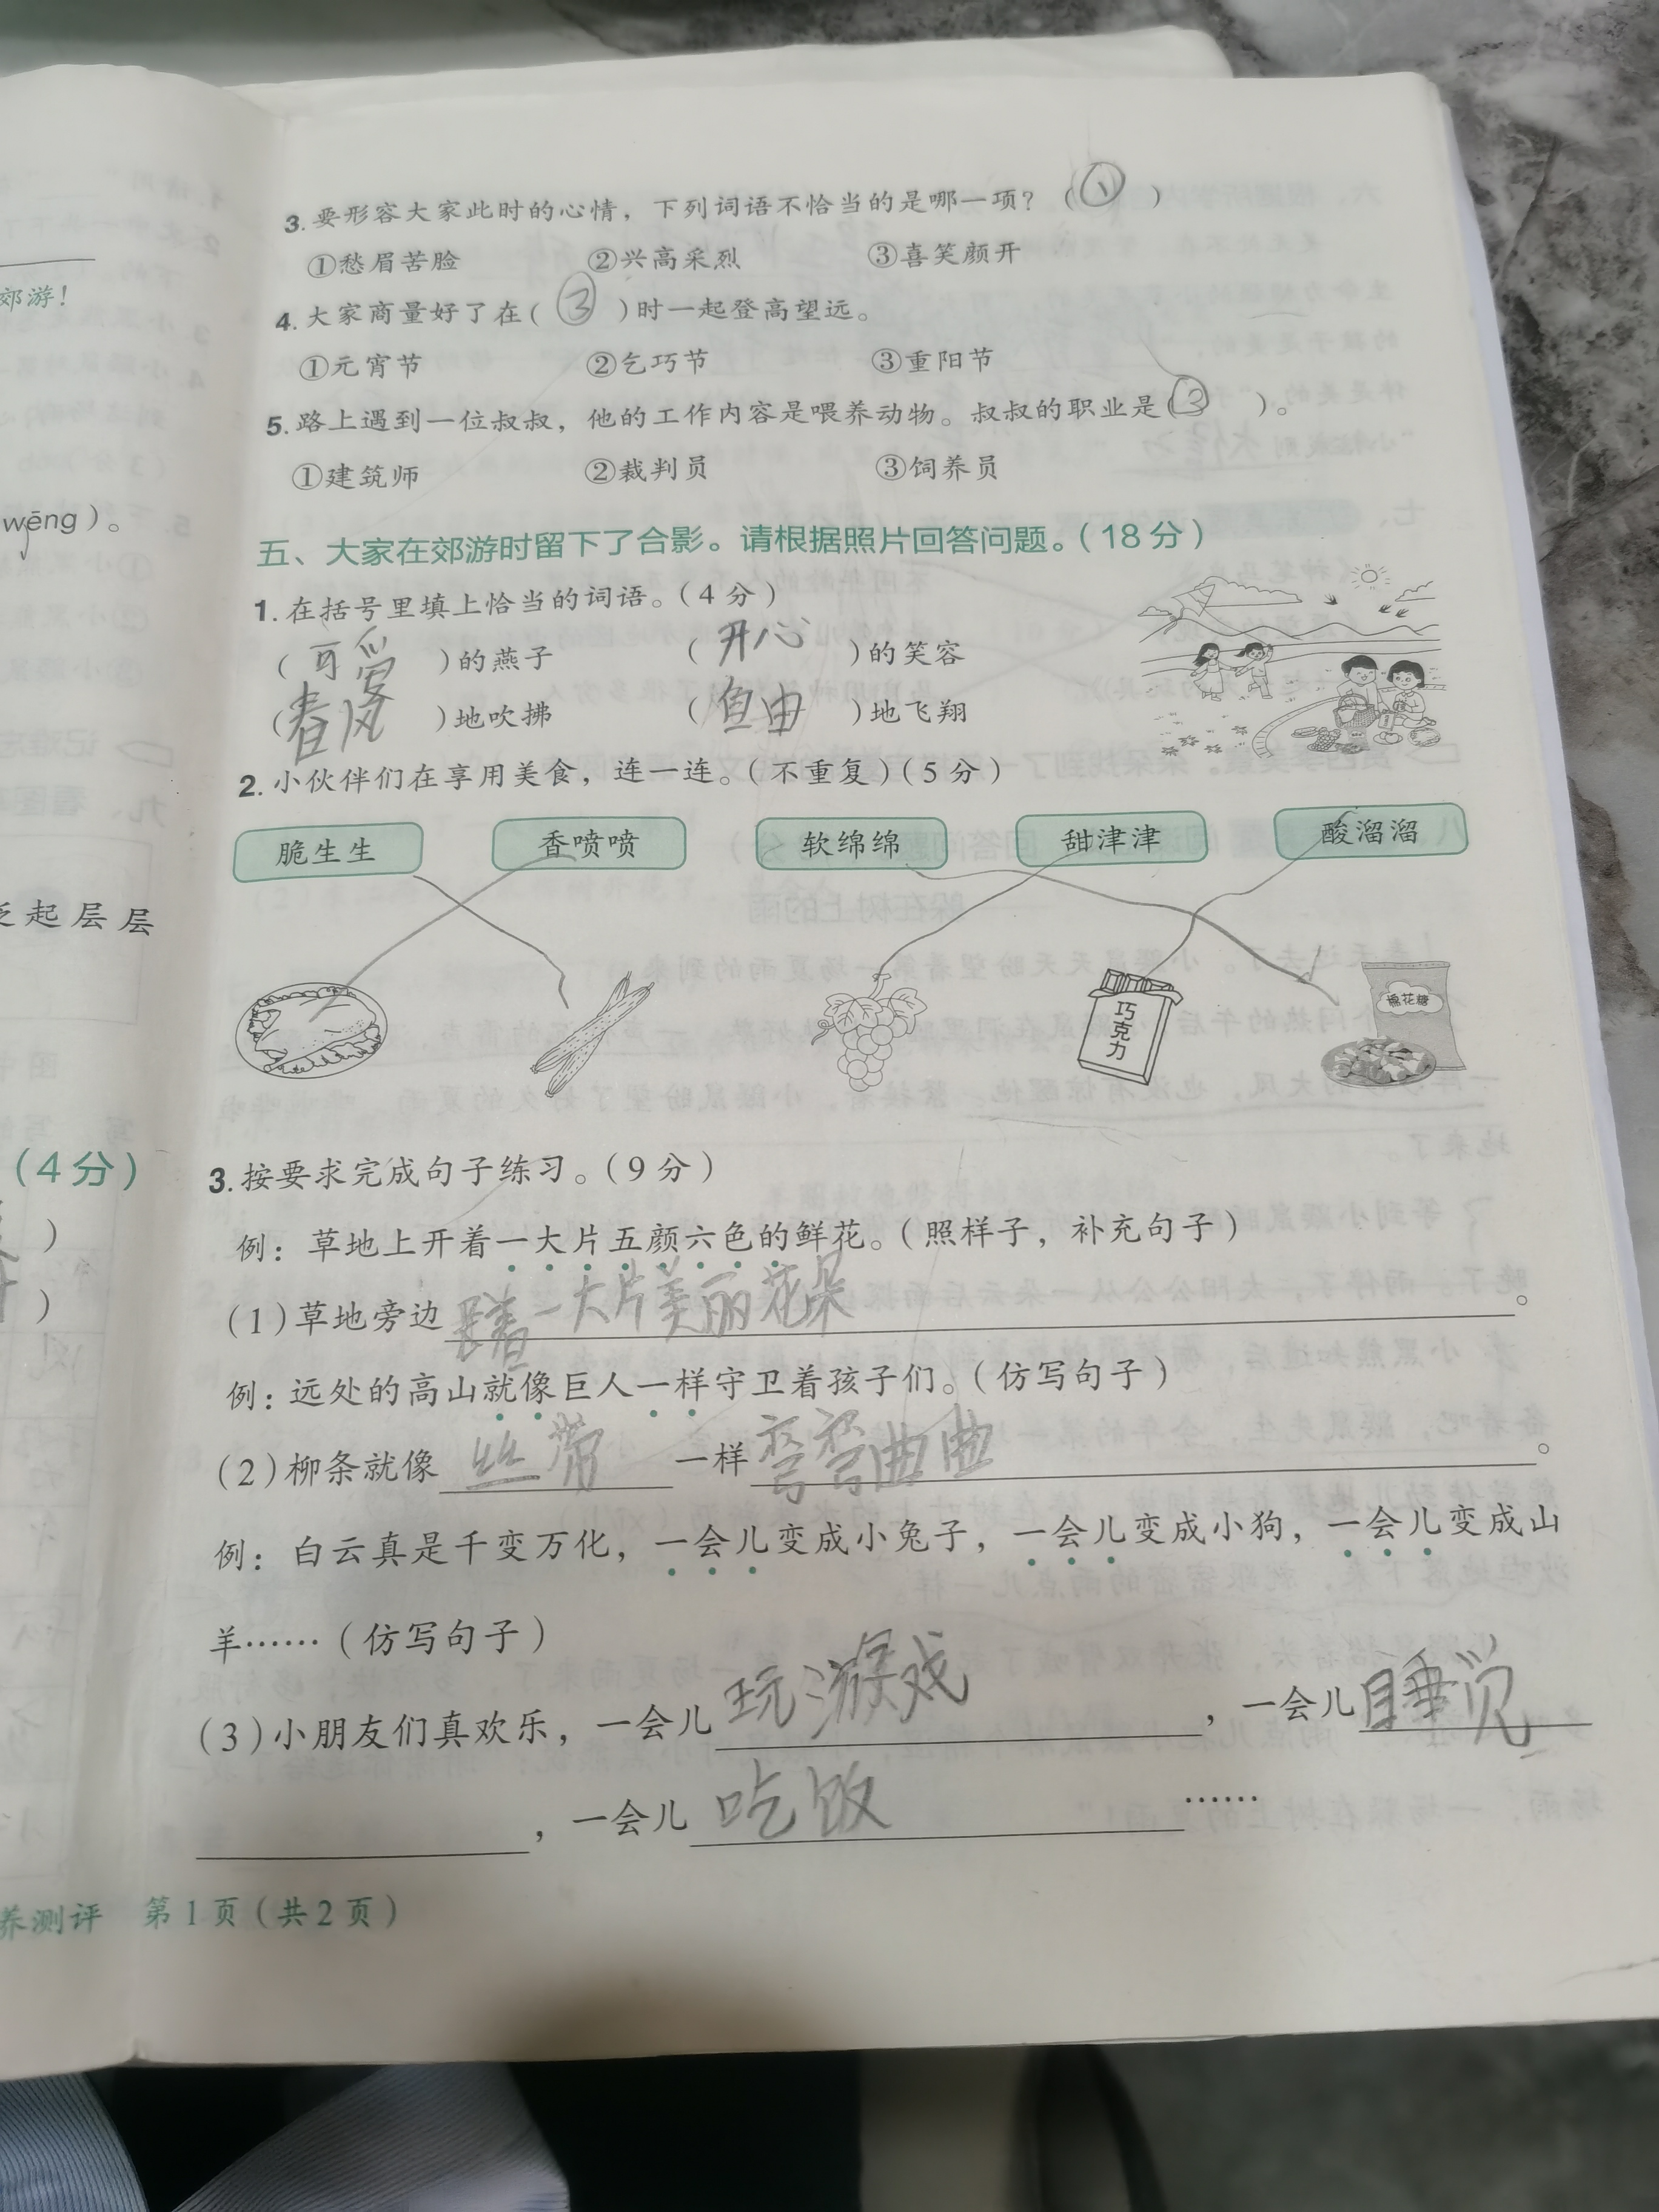 郊游！
wēng）。
泛起层层
（4分）
）
）
养测评 第1页（共2页）
3.要形容大家此时的心情，下列词语不恰当的是哪一项？（①）
①愁眉苦脸 ②兴高采烈 ③喜笑颜开
4.大家商量好了在（③）时一起登高望远。
①元宵节 ②乞巧节 ③重阳节
5.路上遇到一位叔叔，他的工作内容是喂养动物。叔叔的职业是（③）。
①建筑师 ②裁判员 ③饲养员
五、大家在郊游时留下了合影。请根据照片回答问题。（18分）
1.在括号里填上恰当的词语。（4分）
（可爱）的燕子 （开心）的笑容
（春风）地吹拂 （自由）地飞翔
2.小伙伴们在享用美食，连一连。（不重复）（5分）
脆生生 香喷喷 软绵绵 甜津津 酸溜溜
巧克力 棉花糖
3.按要求完成句子练习。（9分）
例：草地上开着一大片五颜六色的鲜花。（照样子，补充句子）
（1）草地旁边长着一大片美丽花朵。
例：远处的高山就像巨人一样守卫着孩子们。（仿写句子）
（2）柳条就像丝带一样弯弯曲曲。
例：白云真是千变万化，一会儿变成小兔子，一会儿变成小狗，一会儿变成山
羊……（仿写句子）
（3）小朋友们真欢乐，一会儿玩游戏，一会儿睡觉
，一会儿吃饭……